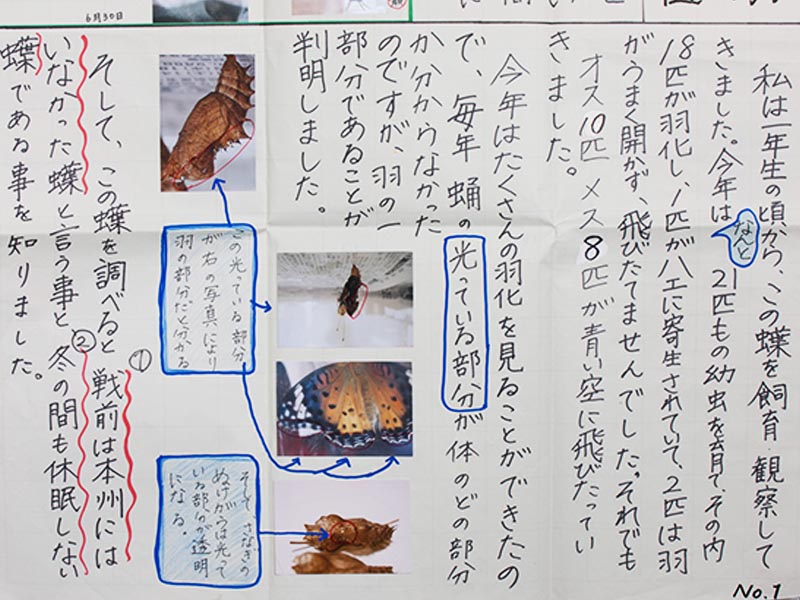 6月30日
私は一年生の頃から、この蝶を飼育観察して
きました。今年はなんと21匹もの幼虫を育て、その内
18匹が羽化し、1匹がハエに寄生されていて、2匹は羽
がうまく開かず、飛びたてませんでした。それでも
オス10匹 メス8匹が青い空に飛びたってい
きました。
今年はたくさんの羽化を見ることができたの
で、毎年 蛹の光っている部分が体のどの部分
か分からなかった
のですが、羽の一
部分であることが
判明しました。
この光っている部分
が右の写真により
羽の部分だと分かる
そして さなぎの
ぬけがらは光って
いる部分が透明
になる.
そして、この蝶を調べると ①戦前は本州には
いなかった蝶と言う事と ②冬の間も休眠しない
蝶である事を知りました。
No.1